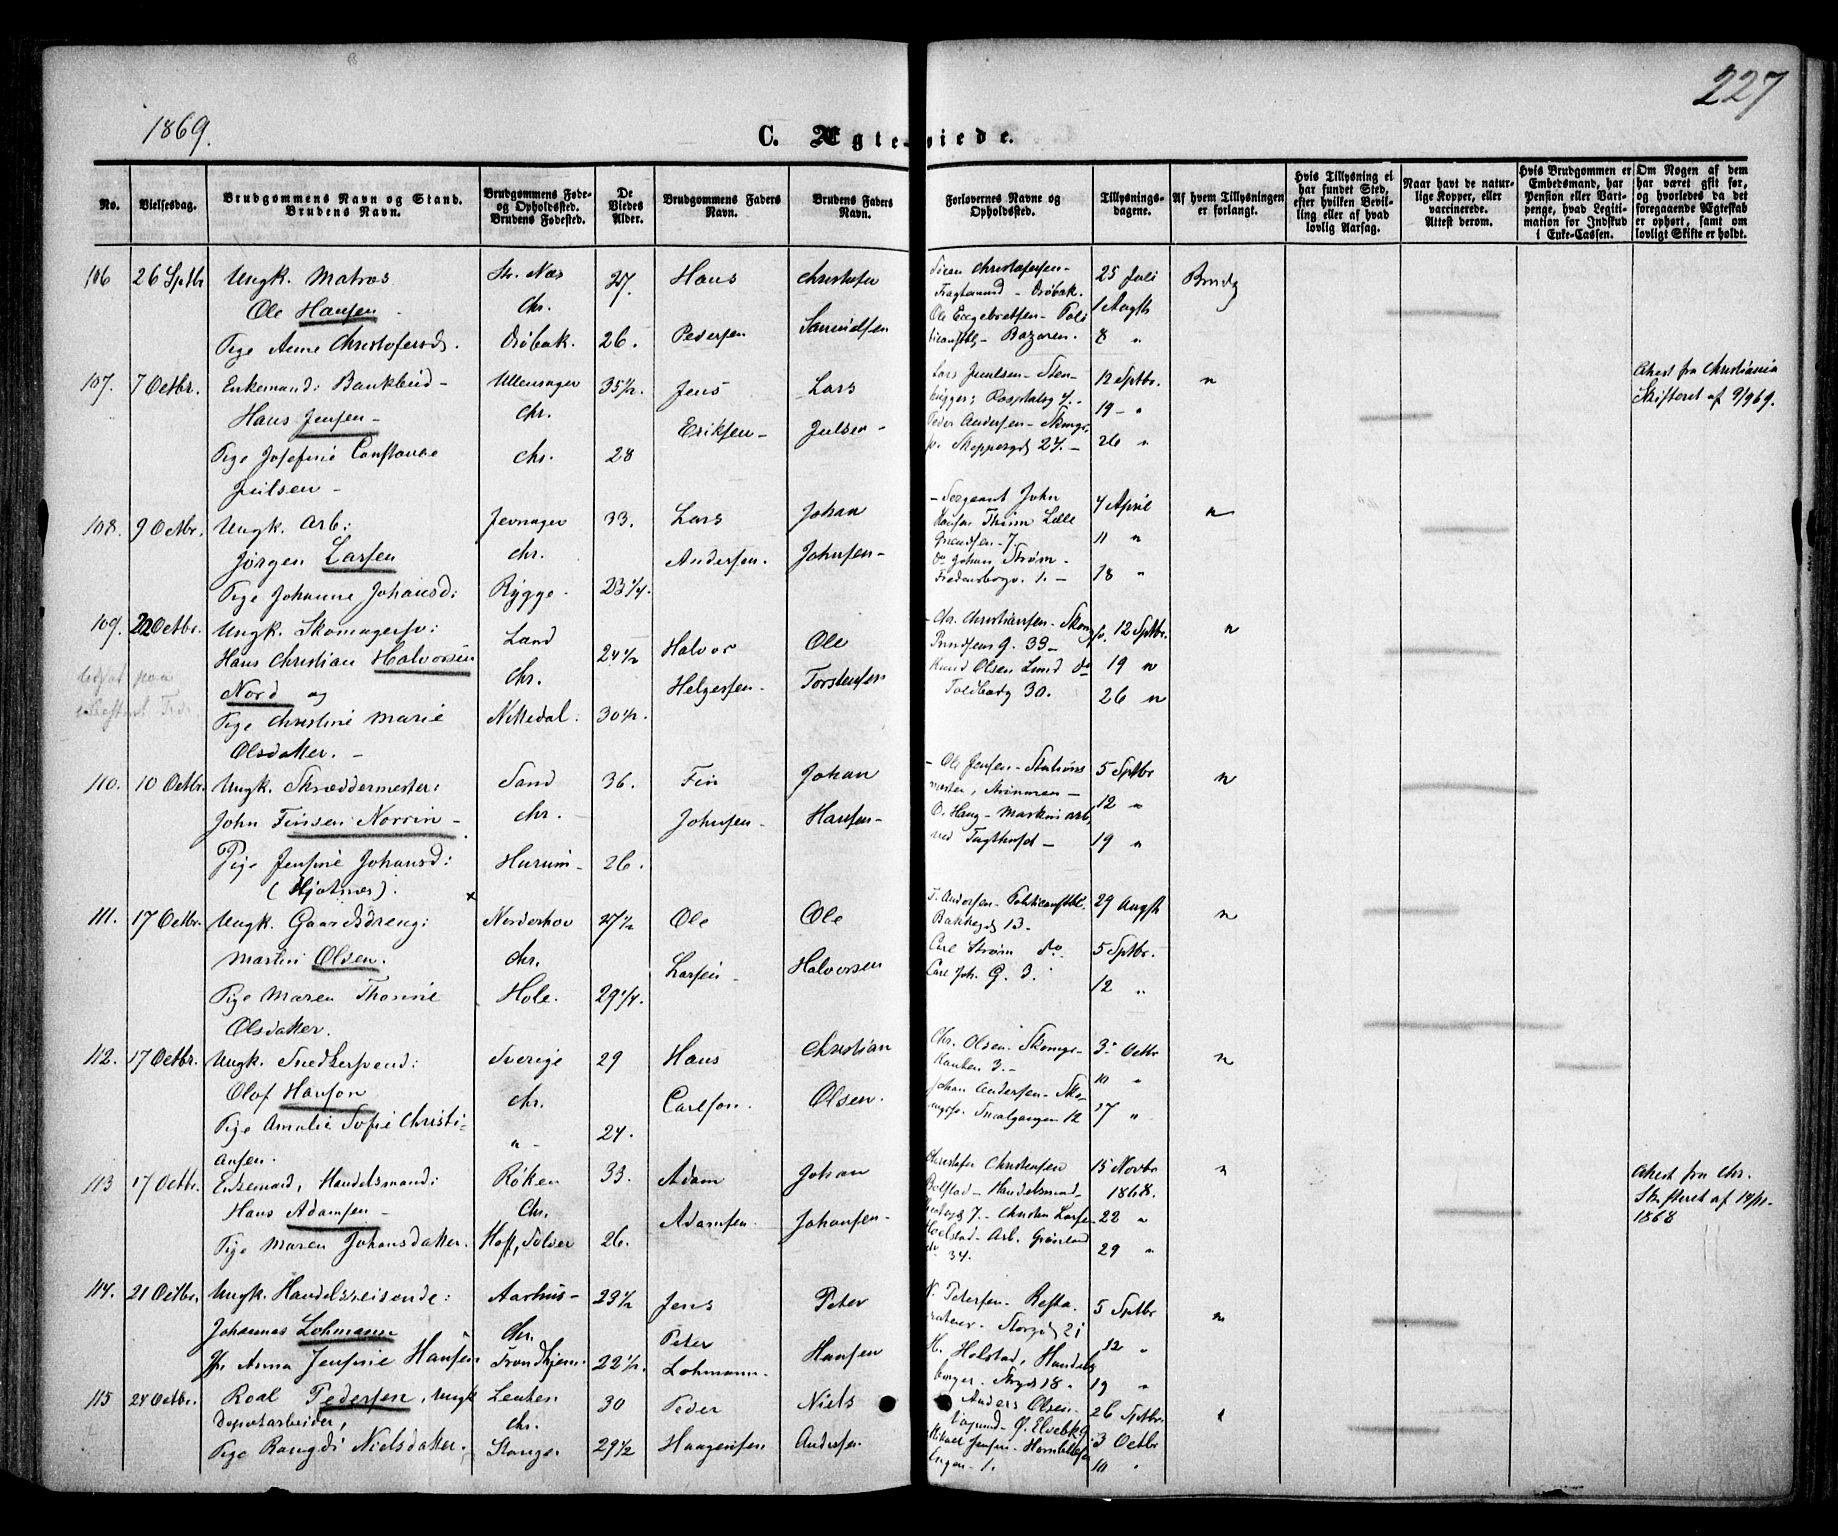 227
1869.
C. Ægteviede.
No.
Vielsesdag.
Brudgommens Navn og Stand.
Brudens Navn.
Brudgommens Føde-
og Opholdssted.
Brudens Fødested.
De
Viedes
Alder.
Brudgommens Faders
Navn.
Brudens Faders
Navn.
Forlovernes Navne og
Opholdssted.
Tillysnings-
dagene.
Af hvem Tillysningen
er forlangt.
Hvis Tillysning ei
har fundet Sted,
efter hvilken Bevil-
ling eller af hvad
lovlig Aarsag.
Naar havt de natur-
lige Kopper, eller
vaccinerede.
Attest derom.
Hvis Brudgommen er
Embedsmand, har
Pension eller Vart-
penge, hvad Legiti-
mation for Indskud
i Enke-Cassen.
Om Nogen af dem
har været gift før,
og hvorledes da det
foregaaende Ægteskab
er ophørt, samt om
lovligt Skifte er holdt.
106 26 Sptbr Ungk. Matros
Ole Hansen
Pige Anne Christofersd.
St. Næs
Chr.
Drøbak.
27.
26.
Hans
Pedersen
Christofer
Samuelsen
Christofersen-
Drøbak.
Ole Engebretsen-
Bazaren.
25 Juli
1 Augst
8 "
Brudg
107. 7 Octbr. Enkemand: Bankbud-
Hans Jensen-
Pige Josefine Constance
Juilsen-
Ullensager
Chr.
Chr.
35½
28
Jens
Eriksen-
Lars
Juelsen-
Lars Juulsen- Sten-
hugger;
Peder Andersen-
Skippergd 27.-
12 Sptbr.
19- "
26 "
"
Attest fra Christiania
Skifteret af 9/9 69.
108. 9 Octbr. Ungk. Arb:
Jørgen Larsen
Pige Johanne Johansd:
Jevnager
Chr.
Rygge.
33.
23¼.
Lars
Andersen.
Johan
Johnsen-
-Sergeant John
Lille
Grændsen-7.
Do Johan Strøm-
Fredensborgv. 1.-
4 April
11 "
18 "
"
109. 22 Octbr. Ungk. Skomagersv:
Hans Christian Halvorsen
Nord og
Pige Christine Marie
Olsdatter.-
Land
Chr.
Nittedal.
24½
30½.
Halvor
Helgesen.
Ole
Torstensen
-Chr. Christiansen-
Prindsens G. 39-
Knud Olsen Lund do
Toldbodg 30.
12 Sptbr.
19 "
26 "
"
110. 10 Octbr. Ungk. Skræddermester:
John Finsen Norrin-
Pige Jensine Johansd:
(Hjertnes).
Sand
Chr.
Hurum-
36.
26.
Fin
Johnsen-
Johan
Hansen-
-Ole Jensen-Stations
mester, Strømmen-
O. Haug-Maskinarb,
5 Sptbr
12 "
19 "
"
111. 17 Octbr. Ungk. Gaardsdreng:
Martin Olsen.
Pige Maren Thorine
Olsdatter.
Norderhov
Chr.
Hole.
27½
29¼.
Ole
Larsen-
Ole
Halvorsen
T. Andersen-Politiconstbl.
Bakkegd 13.
Carl Strøm do.
Carl Joh. G. 3.
29 Augst
5 Sptbr.
12 "
"
112. 17 Octbr. Ungk. Snedkersvend:
Olof Hanson
Pige Amalie Sofie Christi-
ansen.
Sverige
Chr.
" -
29
24.
Hans
Carlson.
Christian
Olsen.
Chr. Olsen. Skomgr-
3.-
Johan Andersen- Sko-
12
3 Octbr
10 "
17 "
"
113 17 Octbr. Enkemand, Handelsmand:
Hans Adamsen-
Pige Maren Johansdatter.
Røken
Chr.
Hoff, Toten
33.
26.
Adam
Adamsen.
Johan
Johansen-
Christofer Christensen
Bolstad-Handelsmand-
7.-Christen Larsen
Arb. Grønland
34.
15 Novbr
1868.
22 "
29 "
"
Attest fra Chr.
Skifteret af 14/11-
1868
114. 21 Octbr. Ungk. Handelsreisende:
Johannes Lohmann
Jfr. Anna Jensine Hansen
Aarhus-
Chr.
Trondhjem-
29½
22½.
Jens
Peter
Lohmann-
Peter
Hansen
N. Petersen. Resta.
rateur- Storgd 21
H. Holstad, Handels
borger. Strgd 18.
5 Sptbr
12 "
19 "
"
115 24 Octbr. Roal Pedersen, Ungk
depotarbeider,
Pige Rangdi Nielsdatter.
Leuten
Chr.
Stange
30
29½
Peder
Haagensen
Niels
Andersen
Anders Olsen-
Ø. Elvebkg.
Mikael Jensen-
Engen-1.
26 Sptbr.
3 Octbr
10 "